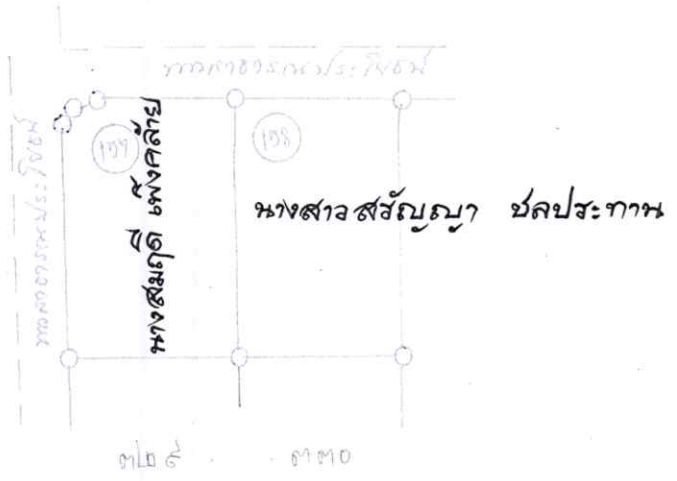 ทางสาธารณประโยชน์
ทางสาธารณประโยชน์
นางสมฤดี เพ็งคล้าย
นางสาวสรัญญา ชลประทาน
๓๒๙ ๓๓๐